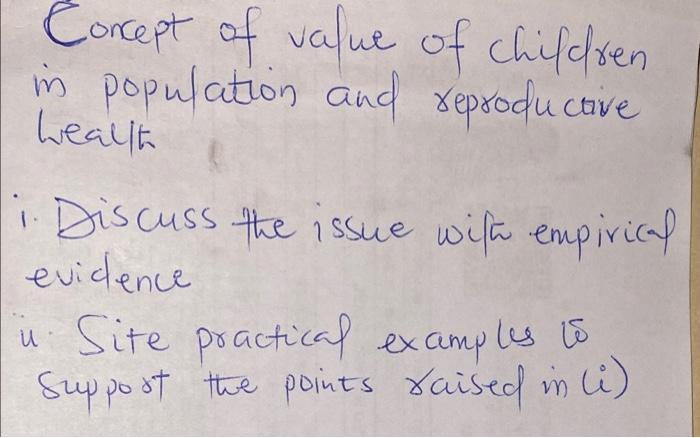 Concept of value of children
in population and reproductive
health
i. Discuss the issue with empirical
evidence
ii. Site practical examples to
support the points raised in (i)